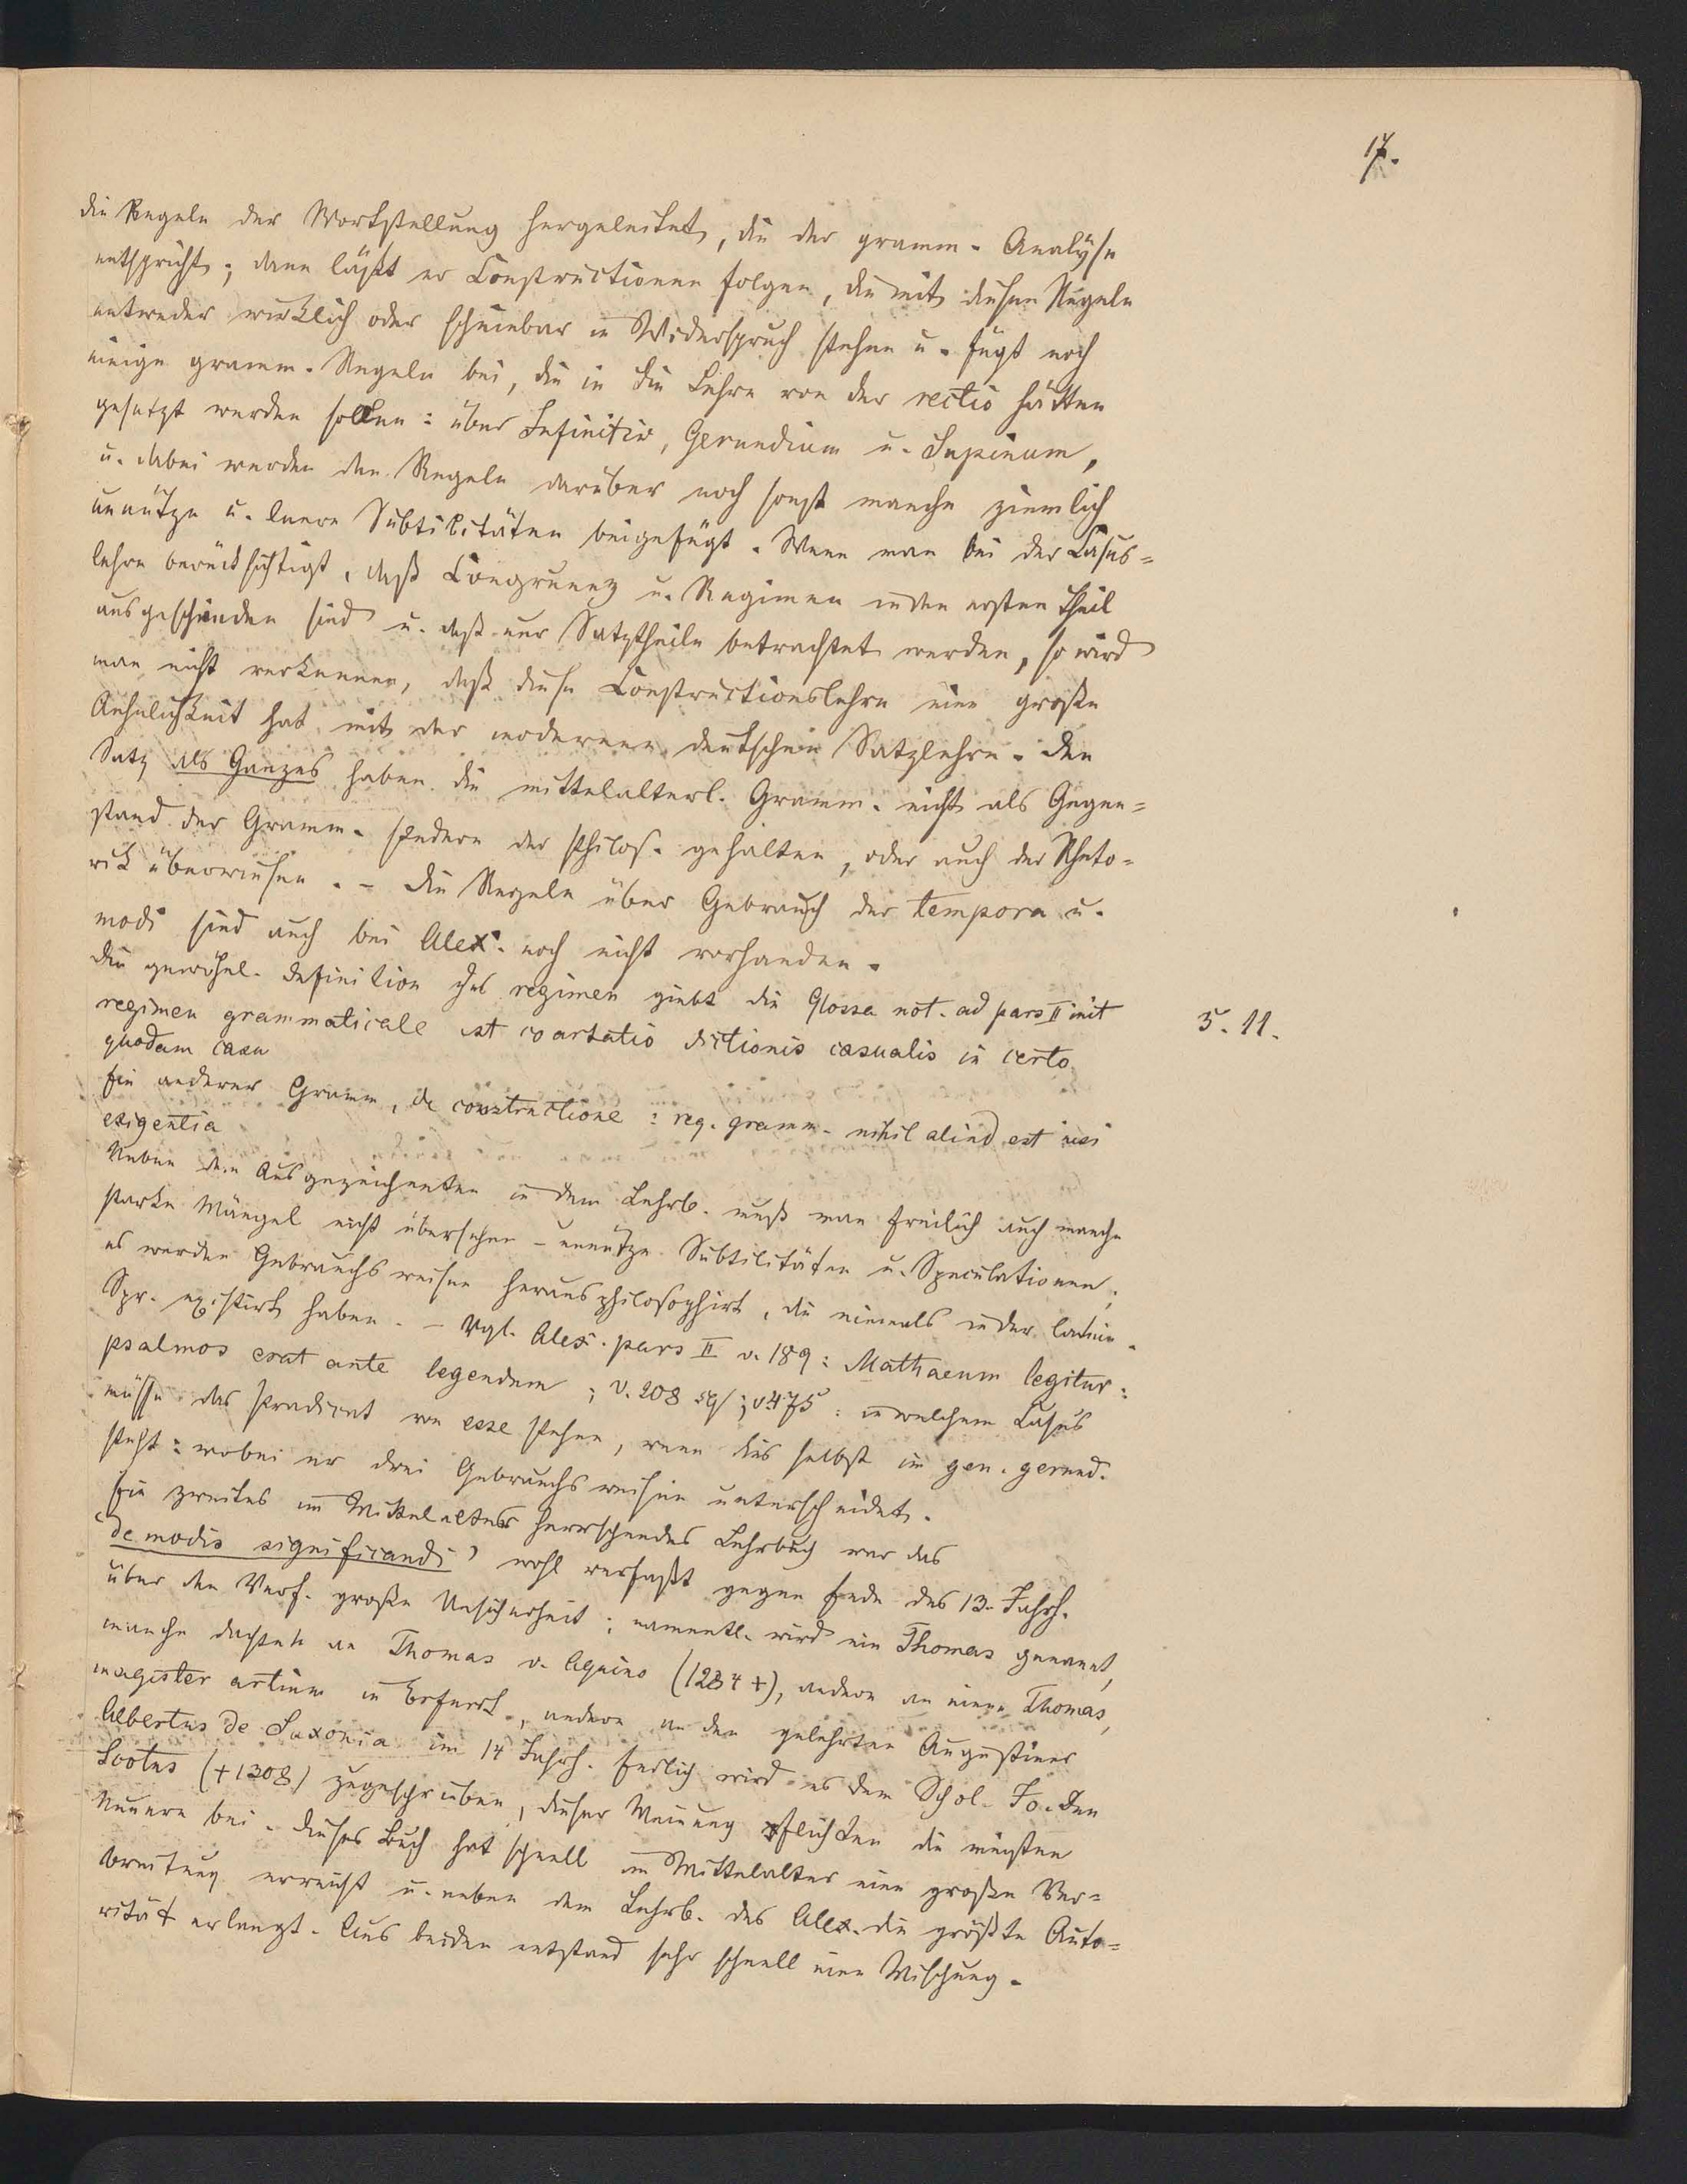 17.
die Regeln der Wortstellung hergeleitet, die der gramm. Analyse
entspricht; dann läßt er Constructionen folgen, die mit diesen Regeln
entweder wirklich oder scheinbar in Widerspruch stehen u. fügt noch
einige gramm. Regeln bei, die in die Lehre von der rectio hätten
gesetzt werden sollen: über Infinitiv, Gerundium u. Supinum,
u. dabei werden den Regeln darüber noch sonst manche ziemlich
unnütze u. leere Subtilitäten beigefügt. Wenn man bei der Casus=
lehre berücksichtigt, daß Congruenz u. Regimen in den ersten Theil
ausgeschieden sind u. daß nur Satztheile betrachtet werden, so wird
man nicht verkennen, daß diese Constructionslehre eine große
Aehnlichkeit hat mit der modernen deutschen Satzlehre. Den
Satz als Ganzes haben die mittelalterl. Gramm. nicht als Gegen=
stand der Gramm. sondern der Philos. gehalten, oder auch der Rheto=
rik überwiesen. – Die Regeln über Gebrauch der tempora u.
modi sind auch bei Alex. noch nicht vorhanden.
Die gewöhnl. Definition des regimen giebt die Glossa not. ad pars II init
regimen grammaticale est coartatio dictionis casualis in certo
quodam casu
5. 11.
Ein anderer Gramm, de constructione: reg. gramm. nihil aliud est nisi
exigentia
Neben dem Ausgezeichneten in dem Lehrb. muß man freilich auch manche
starke Mängel nicht übersehen – unnütze Subtilitäten u. Speculationen;
es werden Gebrauchsweisen herausphilosophirt, die niemals in der latein.
Spr. existirt haben. – Vgl. Alex. pars II v. 189: Mathaeum legitur:
psalmos erat ante legendum; v. 208 sq; v 475: in welchem Casus
müsse das Prädicat von esse stehen, wenn dies selbst im gen. gerund.
steht: wobei er drei Gebrauchsweisen unterscheidet.
Ein zweites im Mittelalter herrschendes Lehrbuch war das
'de modis significandi' wohl verfaßt gegen Ende des 13. Jahrh.
über den Verf. große Unsicherheit; namentl. wird ein Thomas genannt,
manche dachten an Thomas v. Aquino (1234 +), andere an einen Thomas,
magister artium in Erfurt, andere an den gelehrten Augustiner
Albertus de Saxonia im 14 Jahrh. Endlich wird es dem Schol. Jo. Dun
Scotus (+1308) zugeschrieben, dieser Meinung pflichten die meisten
Neuern bei. Dieses Buch hat schnell im Mittelalter eine große Ver=
breitung erreicht u. neben dem Lehrb. des Alex. die größte Auto=
rität erlangt. Aus beiden entstand sehr schnell eine Mischung.